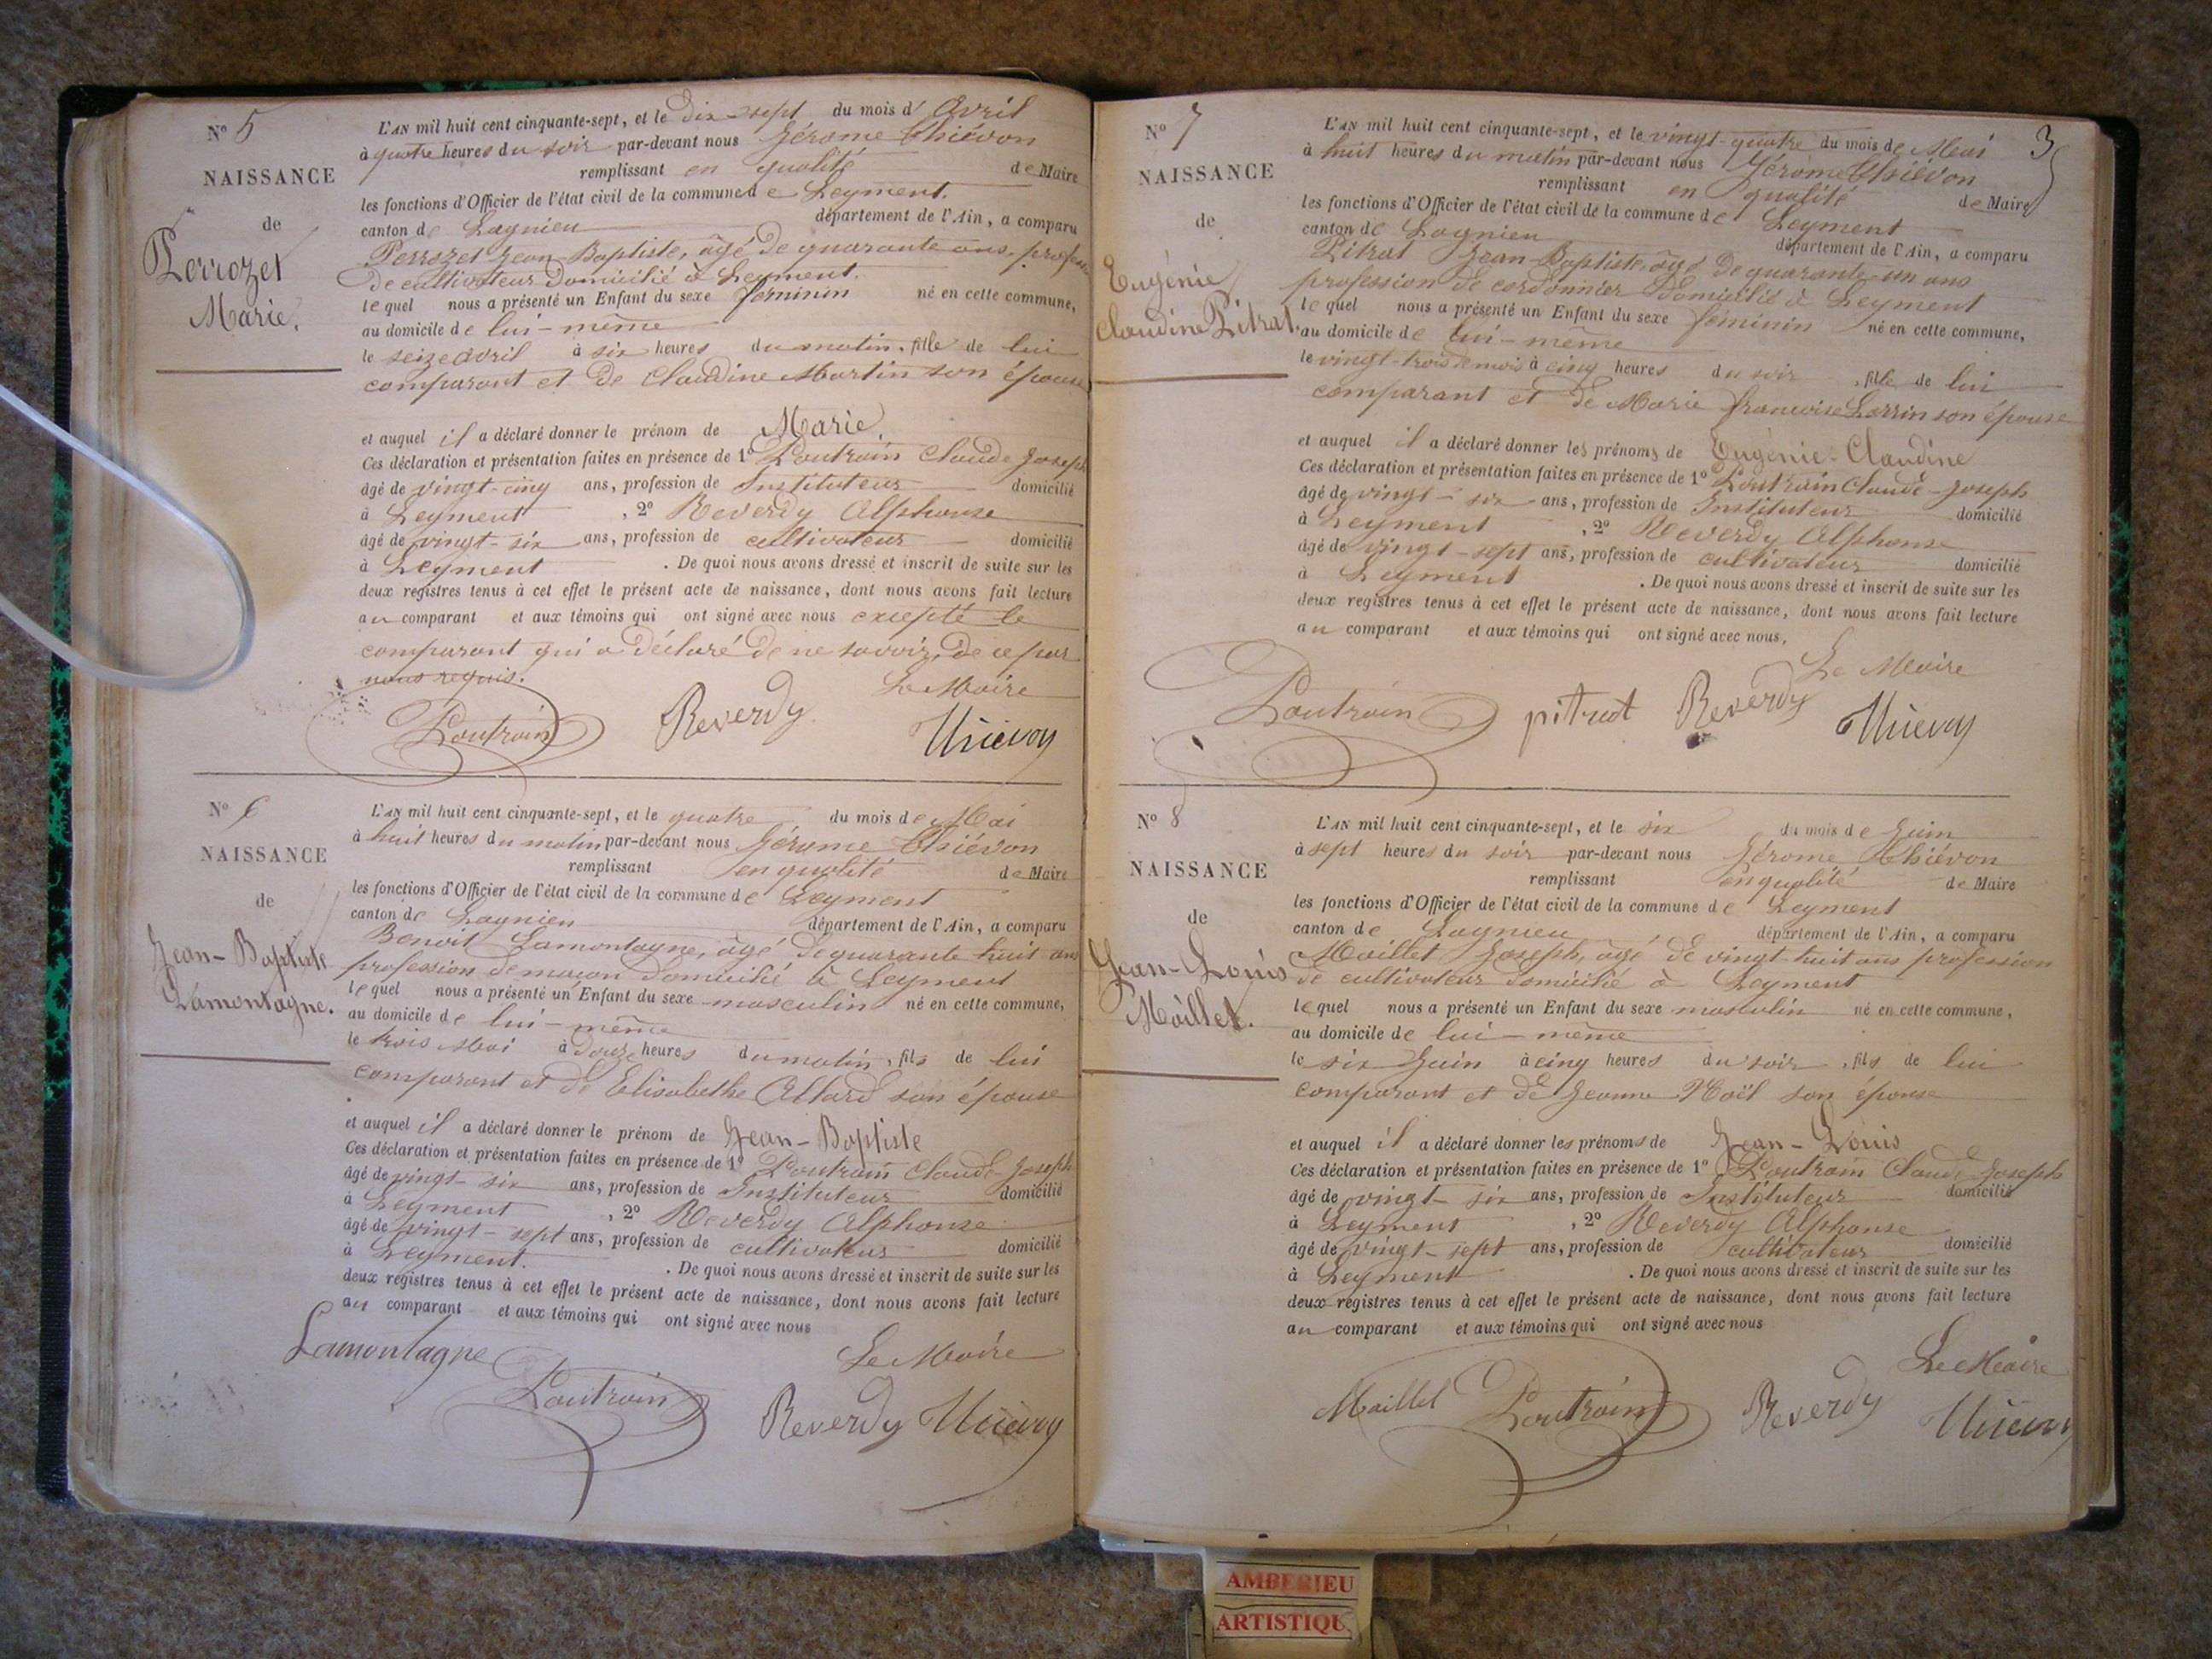 N° 5
NAISSANCE
de
Perrozet
Marie.
L'AN mil huit cent cinquante-sept, et le dix-sept du mois d'Avril
à quatre heures du soir par-devant nous Jérome Thiévon
remplissant en qualité de Maire
les fonctions d'Officier de l'état civil de la commune de Leyment.
canton de Lagnieu département de l'Ain, a comparu
Perrozet Jean-Baptiste, âgé de quarante ans, profession
de cultivateur domicilié à Leyment.
lequel nous a présenté un Enfant du sexe féminin né en cette commune,
au domicile de lui-même
le seize avril à six heures du matin, fille de lui
comparant et de Claudine Martin son épouse
et auquel il a déclaré donner le prénom de Marie.
Ces déclaration et présentation faites en présence de 1° Poutrain Claude Joseph
âgé de vingt-cinq ans, profession de Instituteur domicilié
à Leyment, 2° Reverdy Alphonse
âgé de vingt-six ans, profession de cultivateur domicilié
à Leyment. De quoi nous avons dressé et inscrit de suite sur les
deux registres tenus à cet effet le présent acte de naissance, dont nous avons fait lecture
au comparant et aux témoins qui ont signé avec nous excepté le
comparant qui a déclaré de ne savoir, de ce par
nous requis.
Le Maire
Poutrain Reverdy Thiévon
N° 6
NAISSANCE
de
Jean-Baptiste
Lamontagne.
L'AN mil huit cent cinquante-sept, et le quatre du mois de Mai
à huit heures du matin par-devant nous Jérome Thiévon
remplissant en qualité de Maire
les fonctions d'Officier de l'état civil de la commune de Leyment
canton de Lagnieu département de l'Ain, a comparu
Benoit Lamontagne, âgé de quarante huit ans
profession de maçon domicilié à Leyment
lequel nous a présenté un Enfant du sexe masculin né en cette commune,
au domicile de lui-même
le trois Mai à douze heures du matin, fils de lui
comparant et de Elisabethe Allard son épouse
et auquel il a déclaré donner le prénom de Jean-Baptiste
Ces déclaration et présentation faites en présence de 1° Poutrain Claude-Joseph
âgé de vingt-six ans, profession de Instituteur domicilié
à Leyment, 2° Reverdy Alphonse
âgé de vingt-sept ans, profession de cultivateur domicilié
à Leyment. De quoi nous avons dressé et inscrit de suite sur les
deux registres tenus à cet effet le présent acte de naissance, dont nous avons fait lecture
au comparant et aux témoins qui ont signé avec nous
Lamontagne Le Maire
Poutrain Reverdy Thiévon
3
N° 7
NAISSANCE
de
Eugénie
Claudine Pitrat.
L'AN mil huit cent cinquante-sept, et le vingt-quatre du mois de Mai
à huit heures du matin par-devant nous Jérome Thiévon
remplissant en qualité de Maire
les fonctions d'Officier de l'état civil de la commune de Leyment
canton de Lagnieu département de l'Ain, a comparu
Pitrat Jean-Baptiste, âgé de quarante-un ans
profession de cordonnier domicilié à Leyment
lequel nous a présenté un Enfant du sexe féminin né en cette commune,
au domicile de lui-même
le vingt-trois mois à cinq heures du soir, fille de lui
comparant et de Marie françoise son épouse
et auquel il a déclaré donner les prénoms de Eugénie-Claudine
Ces déclaration et présentation faites en présence de 1° Poutrain Claude-Joseph
âgé de vingt-six ans, profession de Instituteur domicilié
à Leyment, 2° Reverdy Alphonse
âgé de vingt-sept ans, profession de cultivateur domicilié
à Leyment. De quoi nous avons dressé et inscrit de suite sur les
deux registres tenus à cet effet le présent acte de naissance, dont nous avons fait lecture
au comparant et aux témoins qui ont signé avec nous,
Le Maire
Poutrain pitrat Reverdy Thiévon
N° 8
NAISSANCE
de
Jean-Louis
Maillet.
L'AN mil huit cent cinquante-sept, et le six du mois de Juin
à sept heures du soir par-devant nous Jérome Thiévon
remplissant en qualité de Maire
les fonctions d'Officier de l'état civil de la commune de Leyment
canton de Lagnieu département de l'Ain, a comparu
Maillet Joseph, âgé de vingt-huit ans profession
de cultivateur domicilié à Leyment
lequel nous a présenté un Enfant du sexe masculin né en cette commune,
au domicile de lui-même
le six Juin à cinq heures du soir, fils de lui
comparant et de Jeanne Noël son épouse
et auquel il a déclaré donner les prénoms de Jean-Louis
Ces déclaration et présentation faites en présence de 1° Poutrain Claude Joseph
âgé de vingt-six ans, profession de Instituteur domicilié
à Leyment, 2° Reverdy Alphonse
âgé de vingt-sept ans, profession de cultivateur domicilié
à Leyment. De quoi nous avons dressé et inscrit de suite sur les
deux registres tenus à cet effet le présent acte de naissance, dont nous avons fait lecture
au comparant et aux témoins qui ont signé avec nous
Le Maire
Maillet Poutrain Reverdy Thiévon
AMBERIEU
ARTISTIQU